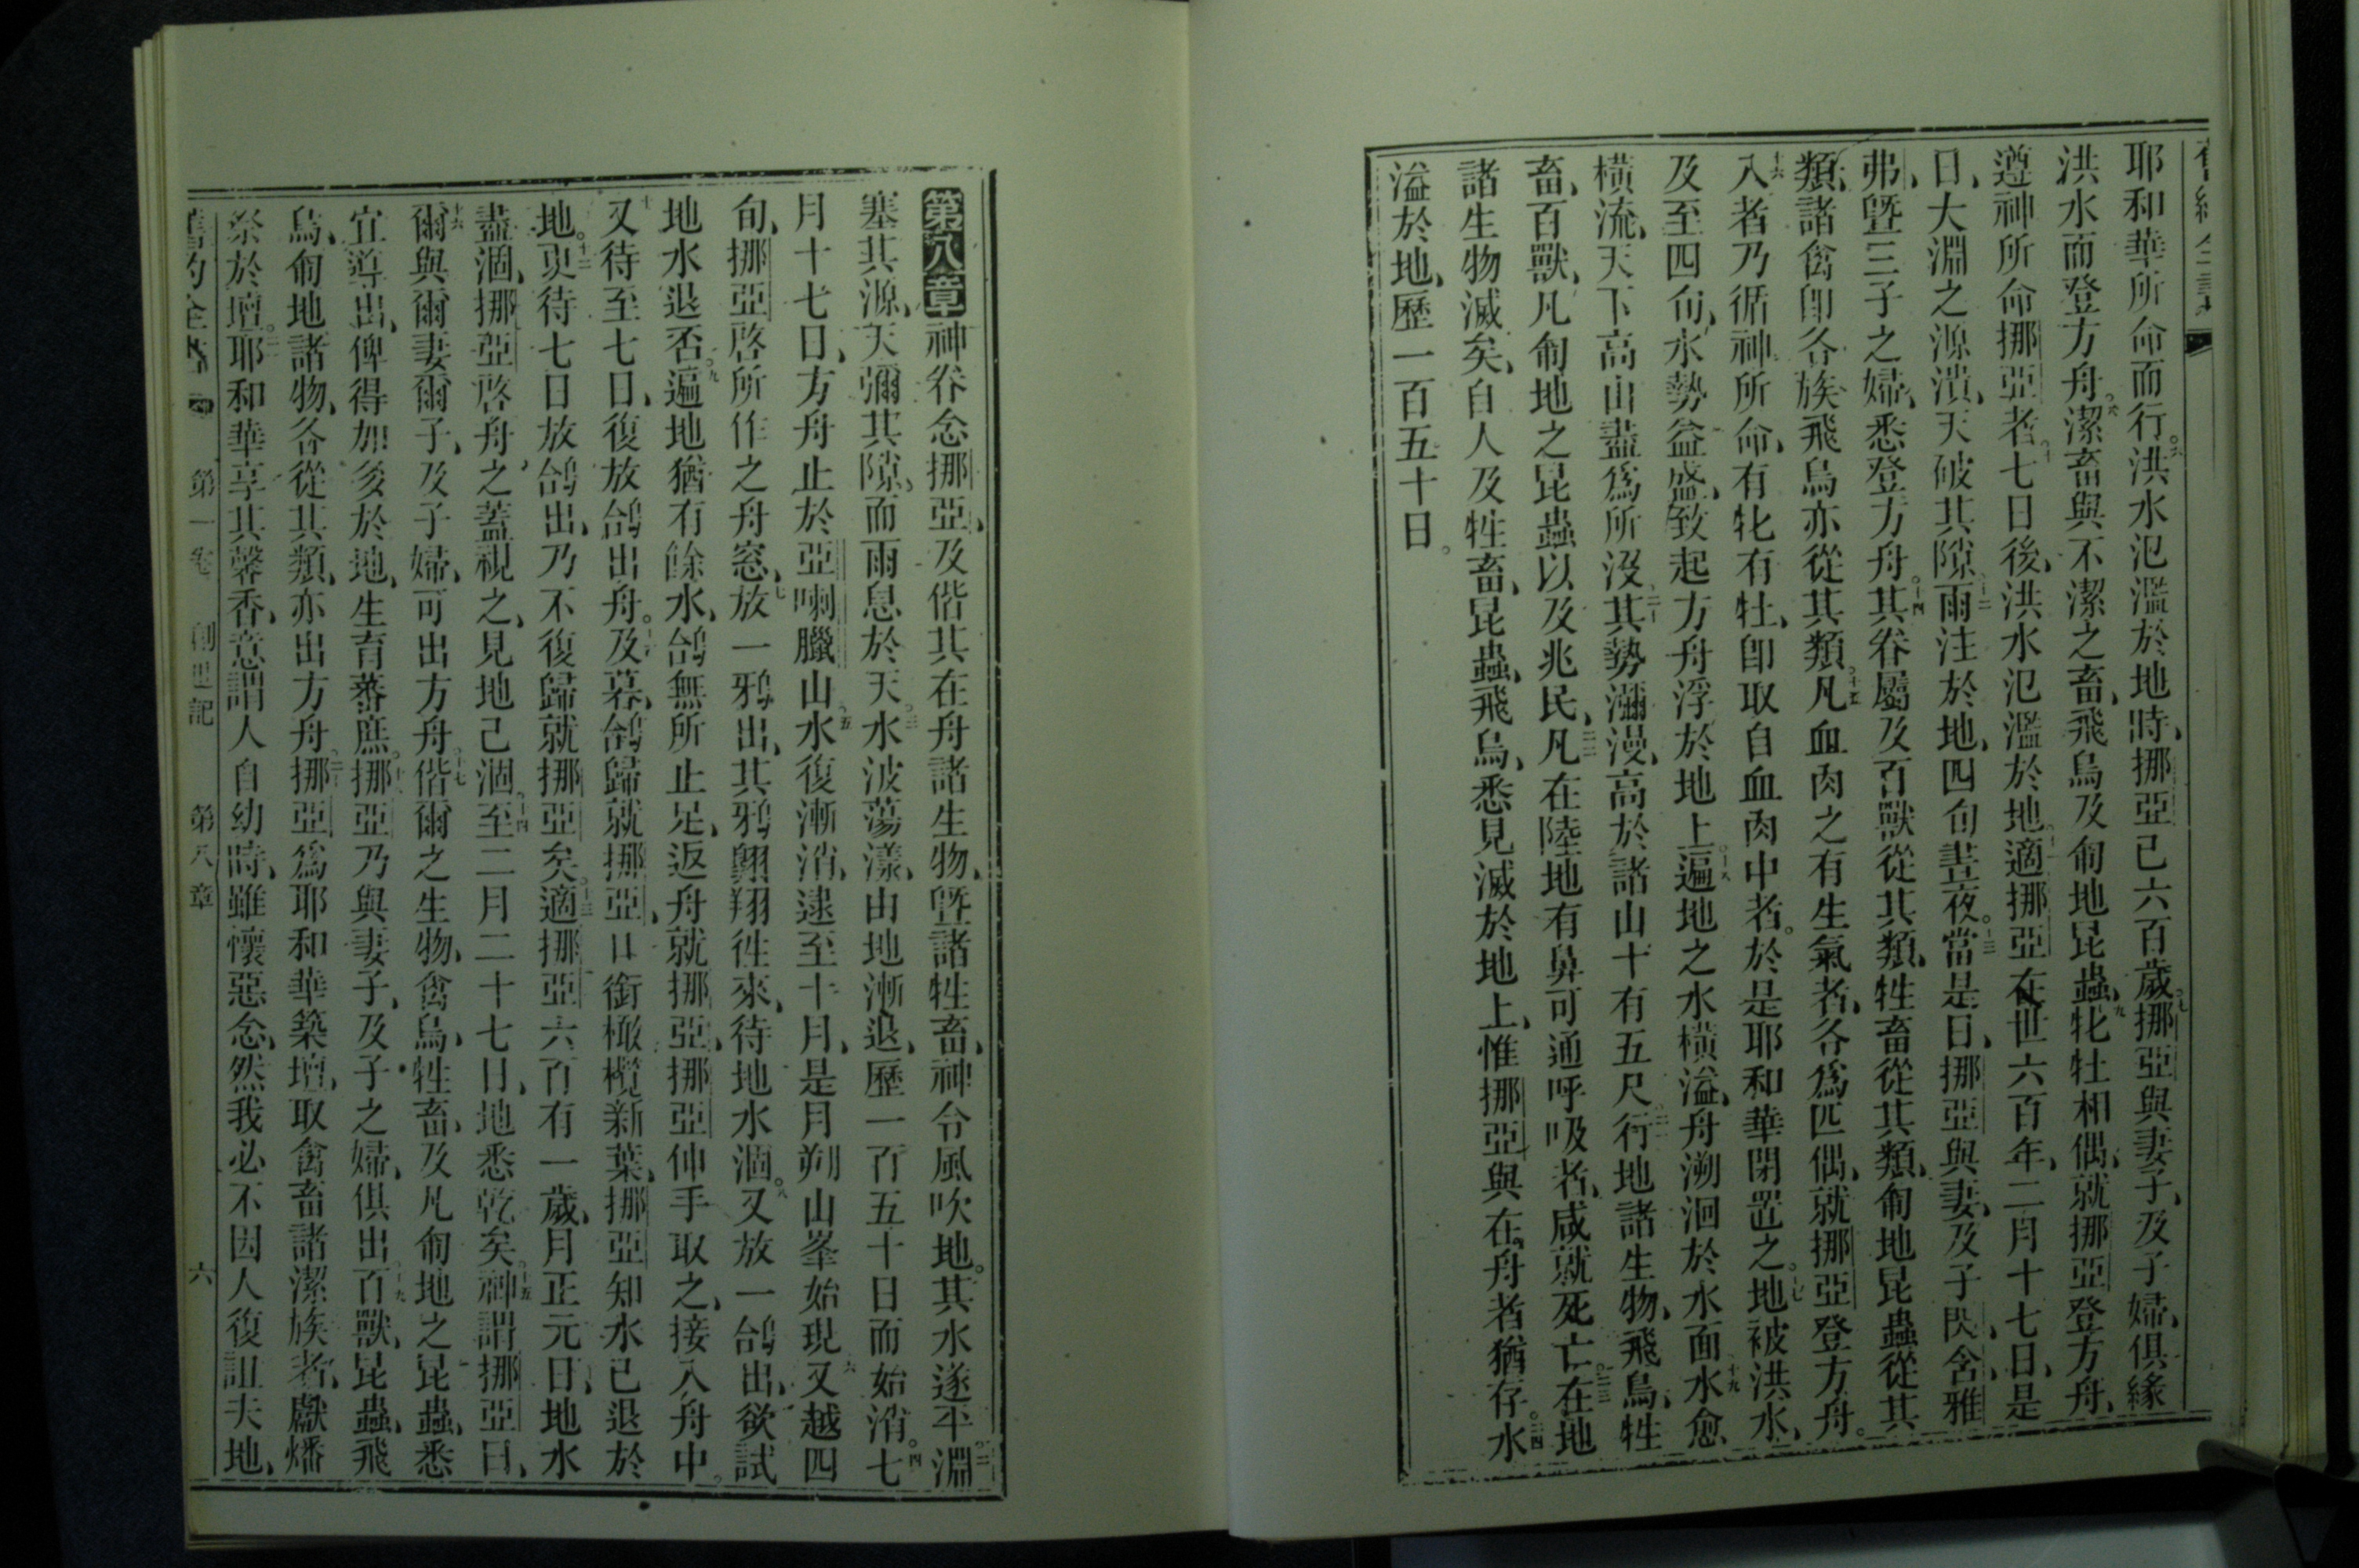 耶和華所命而行。六洪水氾濫於地時、挪亞已六百歲。七挪亞與妻子、及子婦、俱緣
洪水而登方舟。八潔畜與不潔之畜、飛鳥及匍地昆蟲、九牝牡相偶、就挪亞登方舟、
遵神所命挪亞者。十七日後、洪水氾濫於地。十一適挪亞在世六百年、二月十七日、是
日、大淵之源潰、天破其隙、十二雨注於地、四旬晝夜。十三當是日、挪亞與妻、及子閃、含、雅
弗、曁三子之婦、悉登方舟。十四其眷屬及百獸從其類、牲畜從其類、匍地昆蟲從其
類、諸禽卽各族飛鳥亦從其類。十五凡血肉之有生氣者、各爲匹偶、就挪亞登方舟。
十六入者乃循神所命、有牝有牡、卽取自血肉中者。於是耶和華閉置之。十七地被洪水、
及至四旬、水勢益盛、致起方舟浮於地上。十八遍地之水橫溢、舟溯洄於水面。十九水愈
橫流、天下高山盡爲所沒。二十其勢瀰漫、高於諸山十有五尺。二一行地諸生物、飛鳥、牲
畜、百獸、凡匍地之昆蟲以及兆民、二二凡在陸地有鼻可通呼吸者、咸就死亡。二三在地
諸生物滅矣、自人及牲畜、昆蟲、飛鳥、悉見滅於地上、惟挪亞與在舟者猶存。二四水
溢於地、歷一百五十日。
第八章 神眷念挪亞、及偕其在舟諸生物、曁諸牲畜、神令風吹地。其水遂平。二淵
塞其源、天彌其隙。而雨息於天。三水波蕩漾、由地漸退、歷一百五十日而始消。四七
月十七日、方舟止於亞喇臘山。五水復漸消、逮至十月、是月朔山峯始現。六又越四
旬、挪亞啓所作之舟窓、七放一鴉出、其鴉翺翔徃來、待地水涸。八又放一鴿出、欲試
地水退否。九遍地猶有餘水、鴿無所止足、返舟就挪亞、挪亞伸手取之、接入舟中。
十又待至七日、復放鴿出舟。十一及暮、鴿歸就挪亞、口銜橄欖新葉、挪亞知水已退於
地。十二更待七日放鴿出、乃不復歸就挪亞矣。十三適挪亞六百有一歲、月正元日、地水
盡涸、挪亞啓舟之蓋視之、見地已涸。十四至二月二十七日、地悉乾矣。十五神謂挪亞曰、
十六爾與爾妻爾子、及子婦、可出方舟。十七偕爾之生物、禽鳥、牲畜、及凡匍地之昆蟲、悉
宜導出、俾得加多於地、生育蕃庶。十八挪亞乃與妻子、及子之婦、俱出。十九百獸、昆蟲、飛
鳥、匍地諸物、各從其類、亦出方舟。二十挪亞爲耶和華築壇、取禽畜諸潔族者、獻燔
祭於壇。二一耶和華享其馨香、意謂人自幼時、雖懷惡念、然我必不因人復詛夫地、
舊約全書 第一卷 創世記 第八章 六